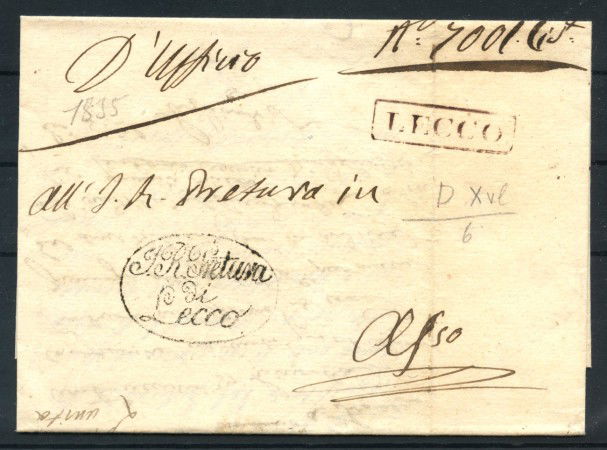 D'Ufficio
No. 7001. Cist.
1835
LECCO
all' I. R. Pretura in
D XVI
6
I.R. Pretura
di
Lecco
Asso